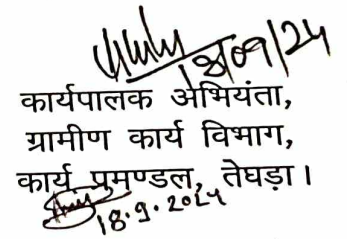 18/09/24
कार्यपालक अभियंता,
ग्रामीण कार्य विभाग,
कार्य प्रमण्डल, तेघड़ा।
18.9.2024